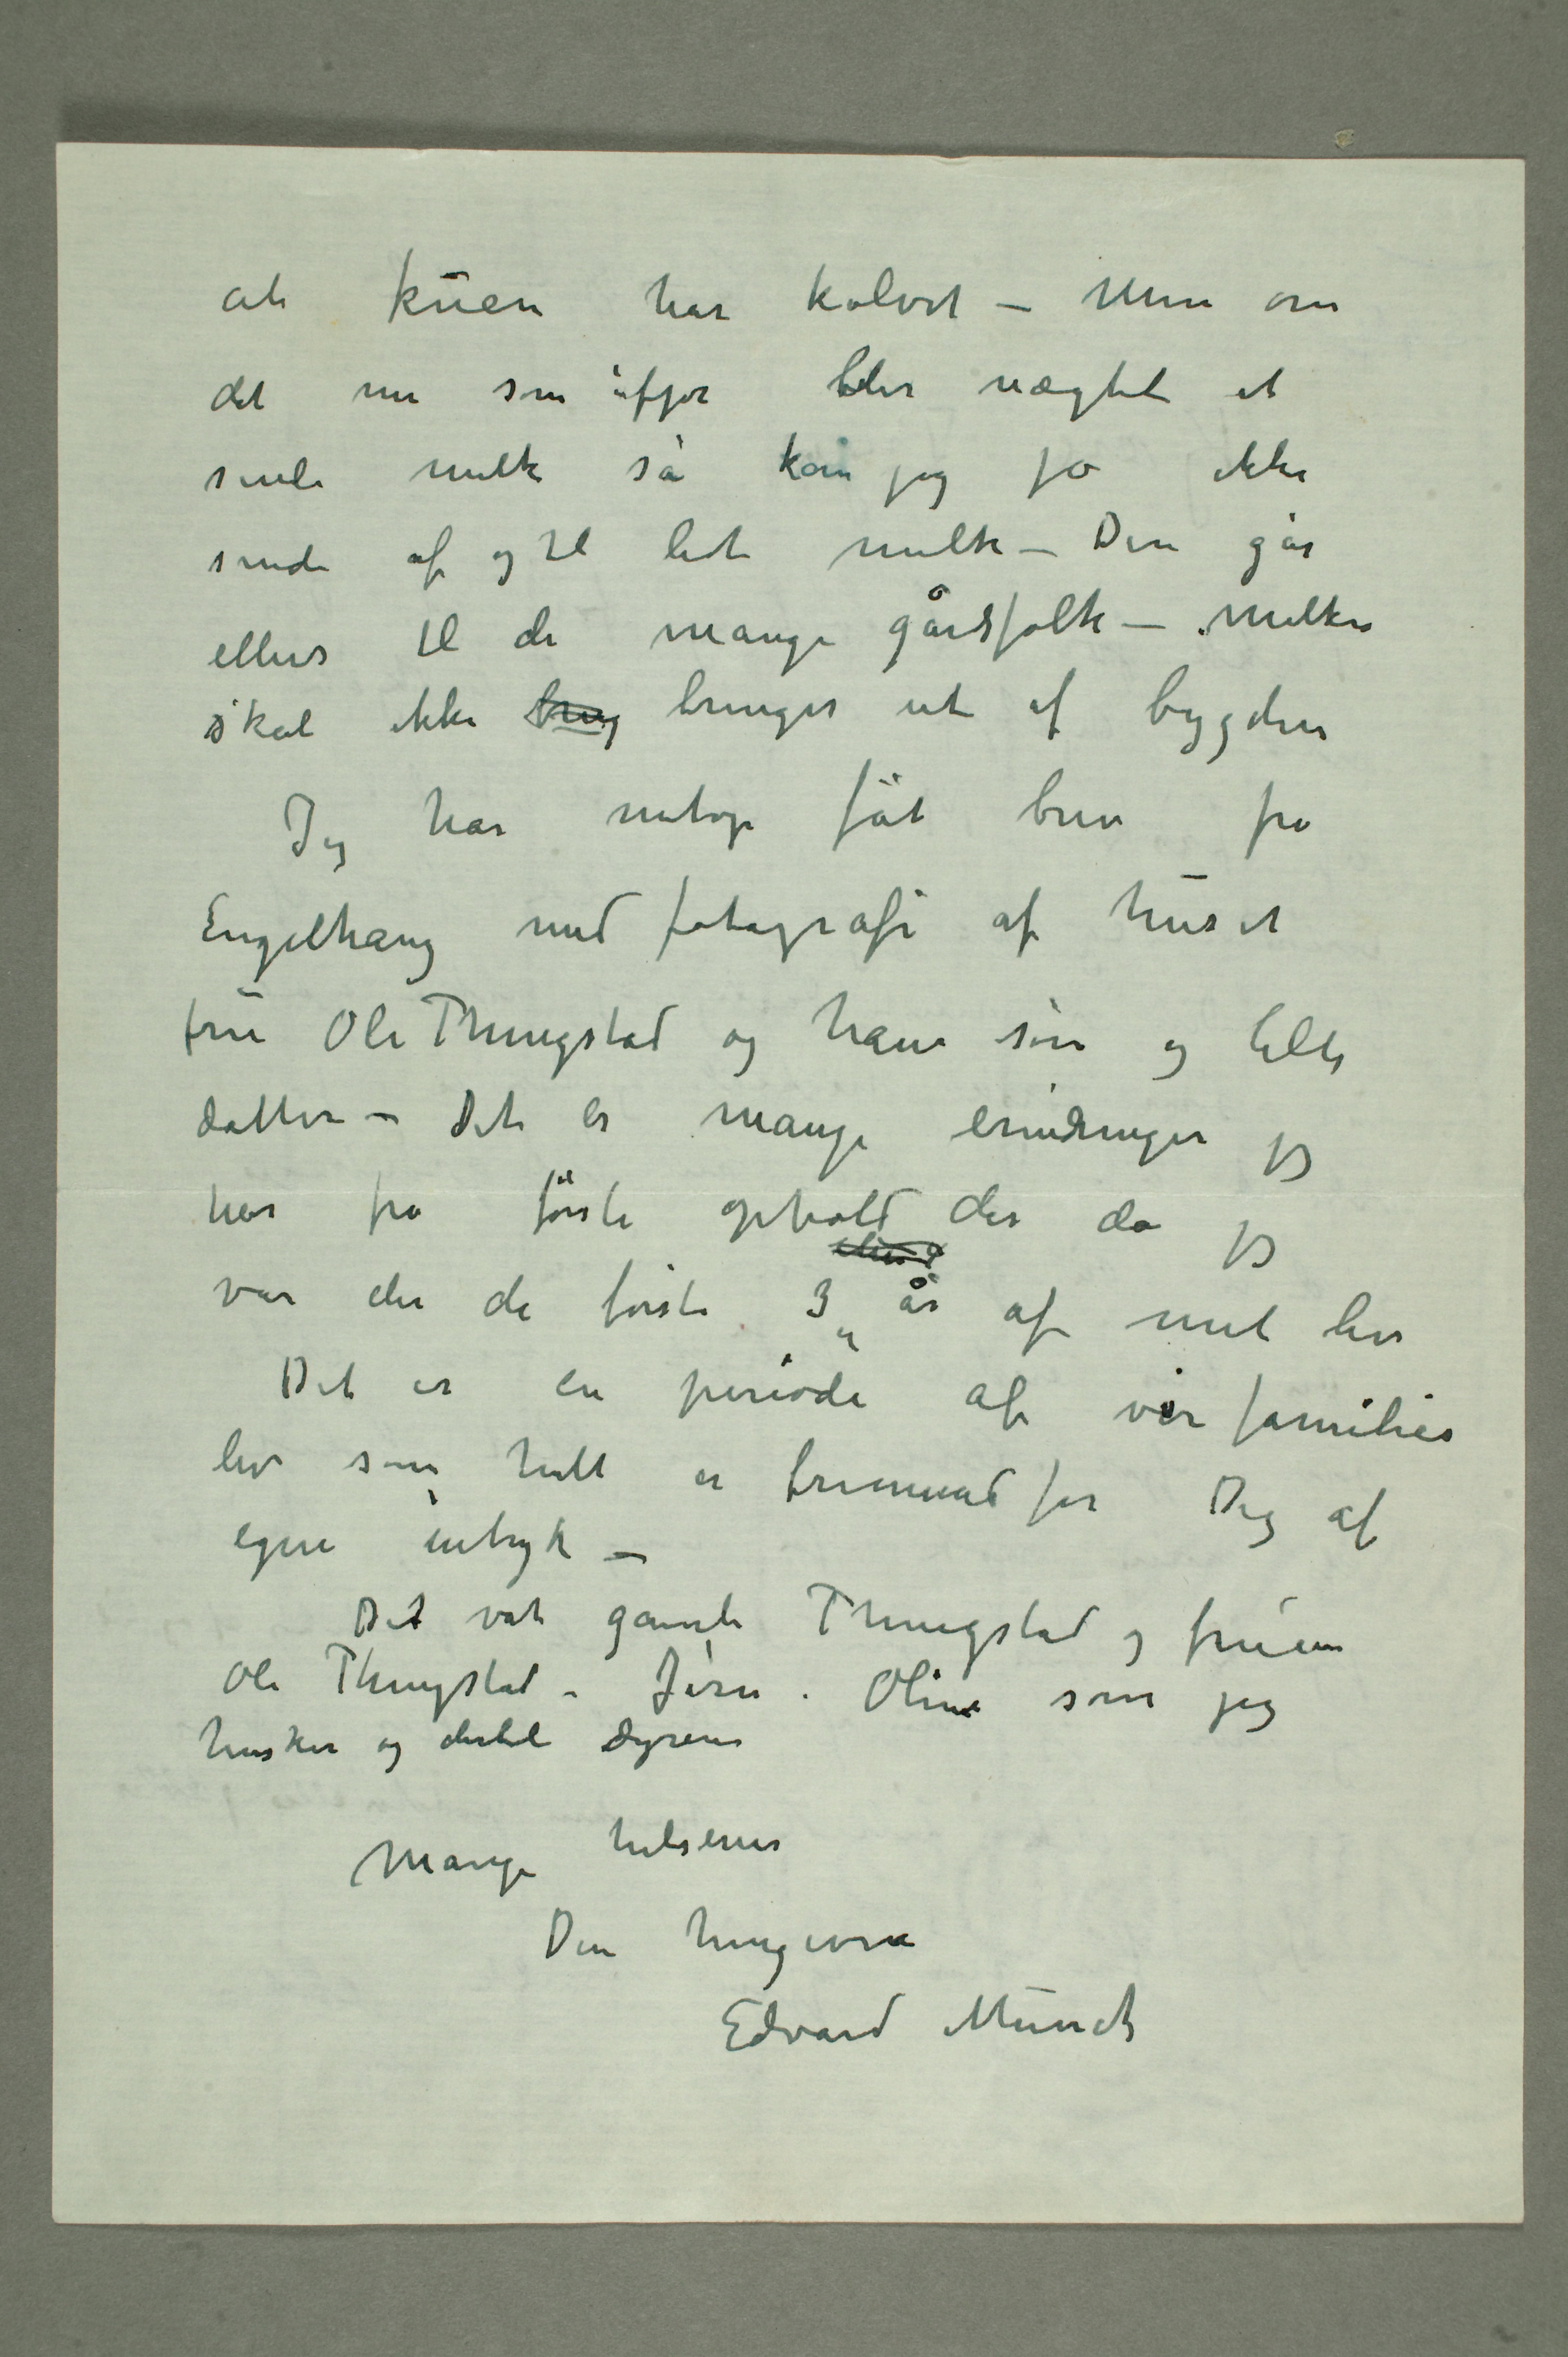 at kuen har kalvet – Men om
det nu som ifjor blir nægtet at
sende melk så kan jeg jo ikke
sende af og til lidt melk – Den går
ellers til de mange gårdsfolk – Melken
skal ikke bring bringes ut af bygden
Jeg har netop fåt brev fra
Engelhaug med fotografi af huset
fru Ole Thingstad og hans sön og lille
datter – Det er mange erindringer jeg
har fra förste ophold der da jeg
var der de förste 3 år af mit liv
Det er en periode af vår families
liv som helt er fremmed for Dig af
egne intryk –
Det var gamle Thingstad og fruen
Ole Thingstad – Jörn. Oline som jeg
husker og dertil dyrene
Mange hilsener
Din hengivne
Edvard Munch